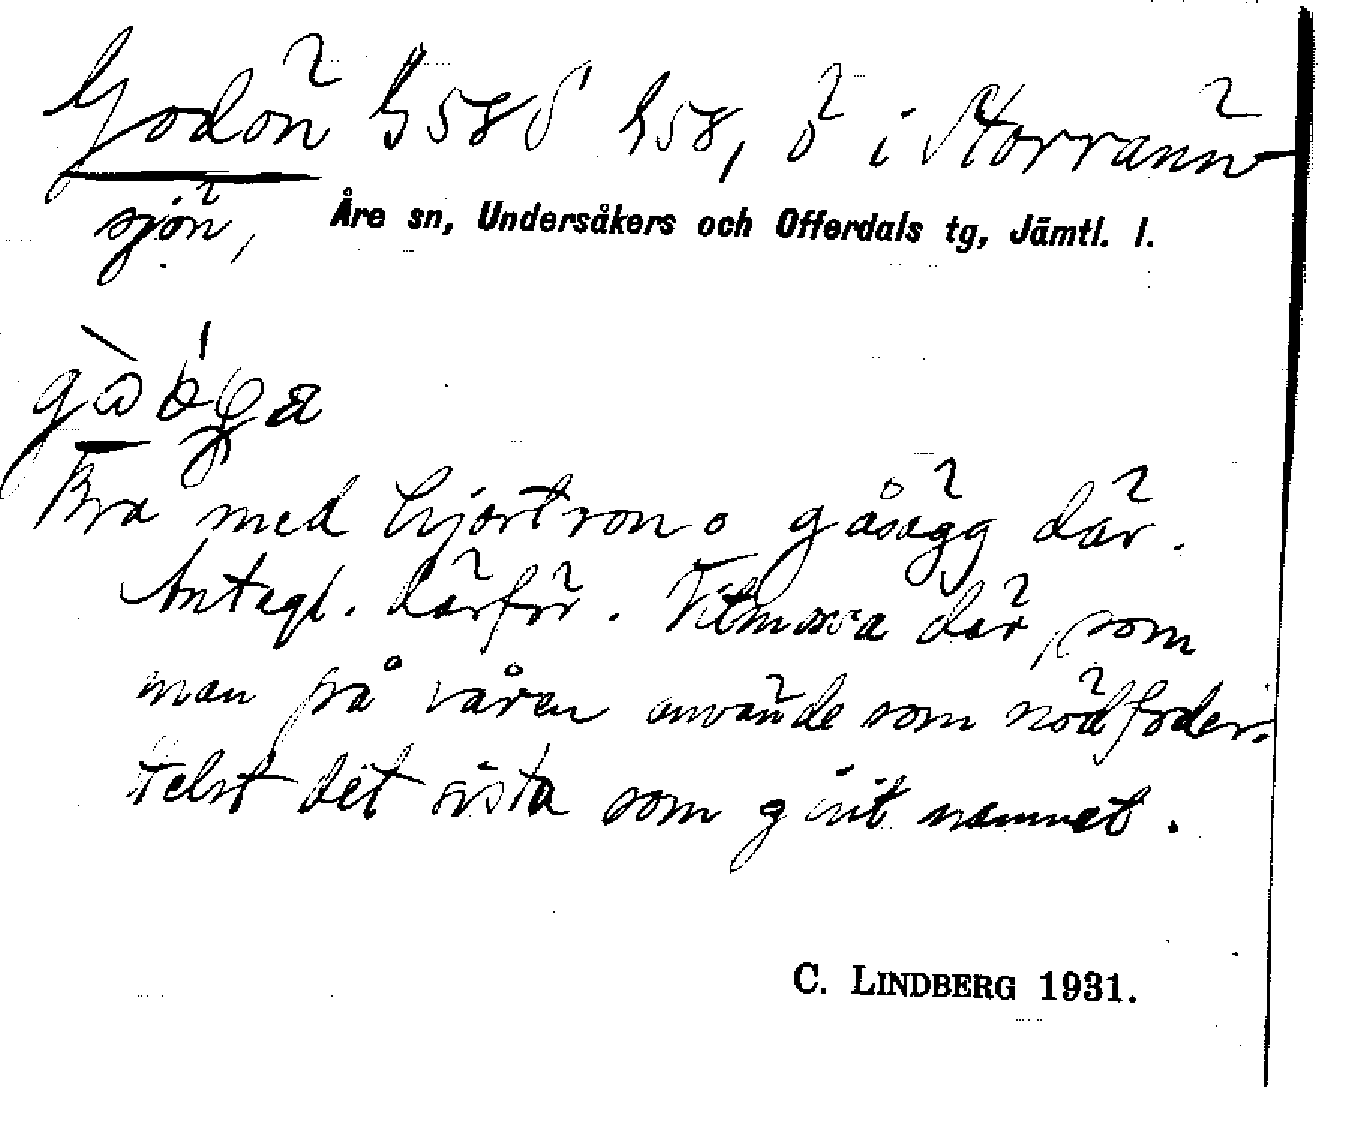 Godön G58d h58, ö i Storrenn-
sjön,
Åre sn, Undersåkers och Offerdals tg, Jämtl. l.
Bra med hjortron o gåsägg där.
Antagl. därför. Vitmossa där, som
man på våren använde som nödfoder.
det sista som givit namnet.
C. LINDBERG 1931.